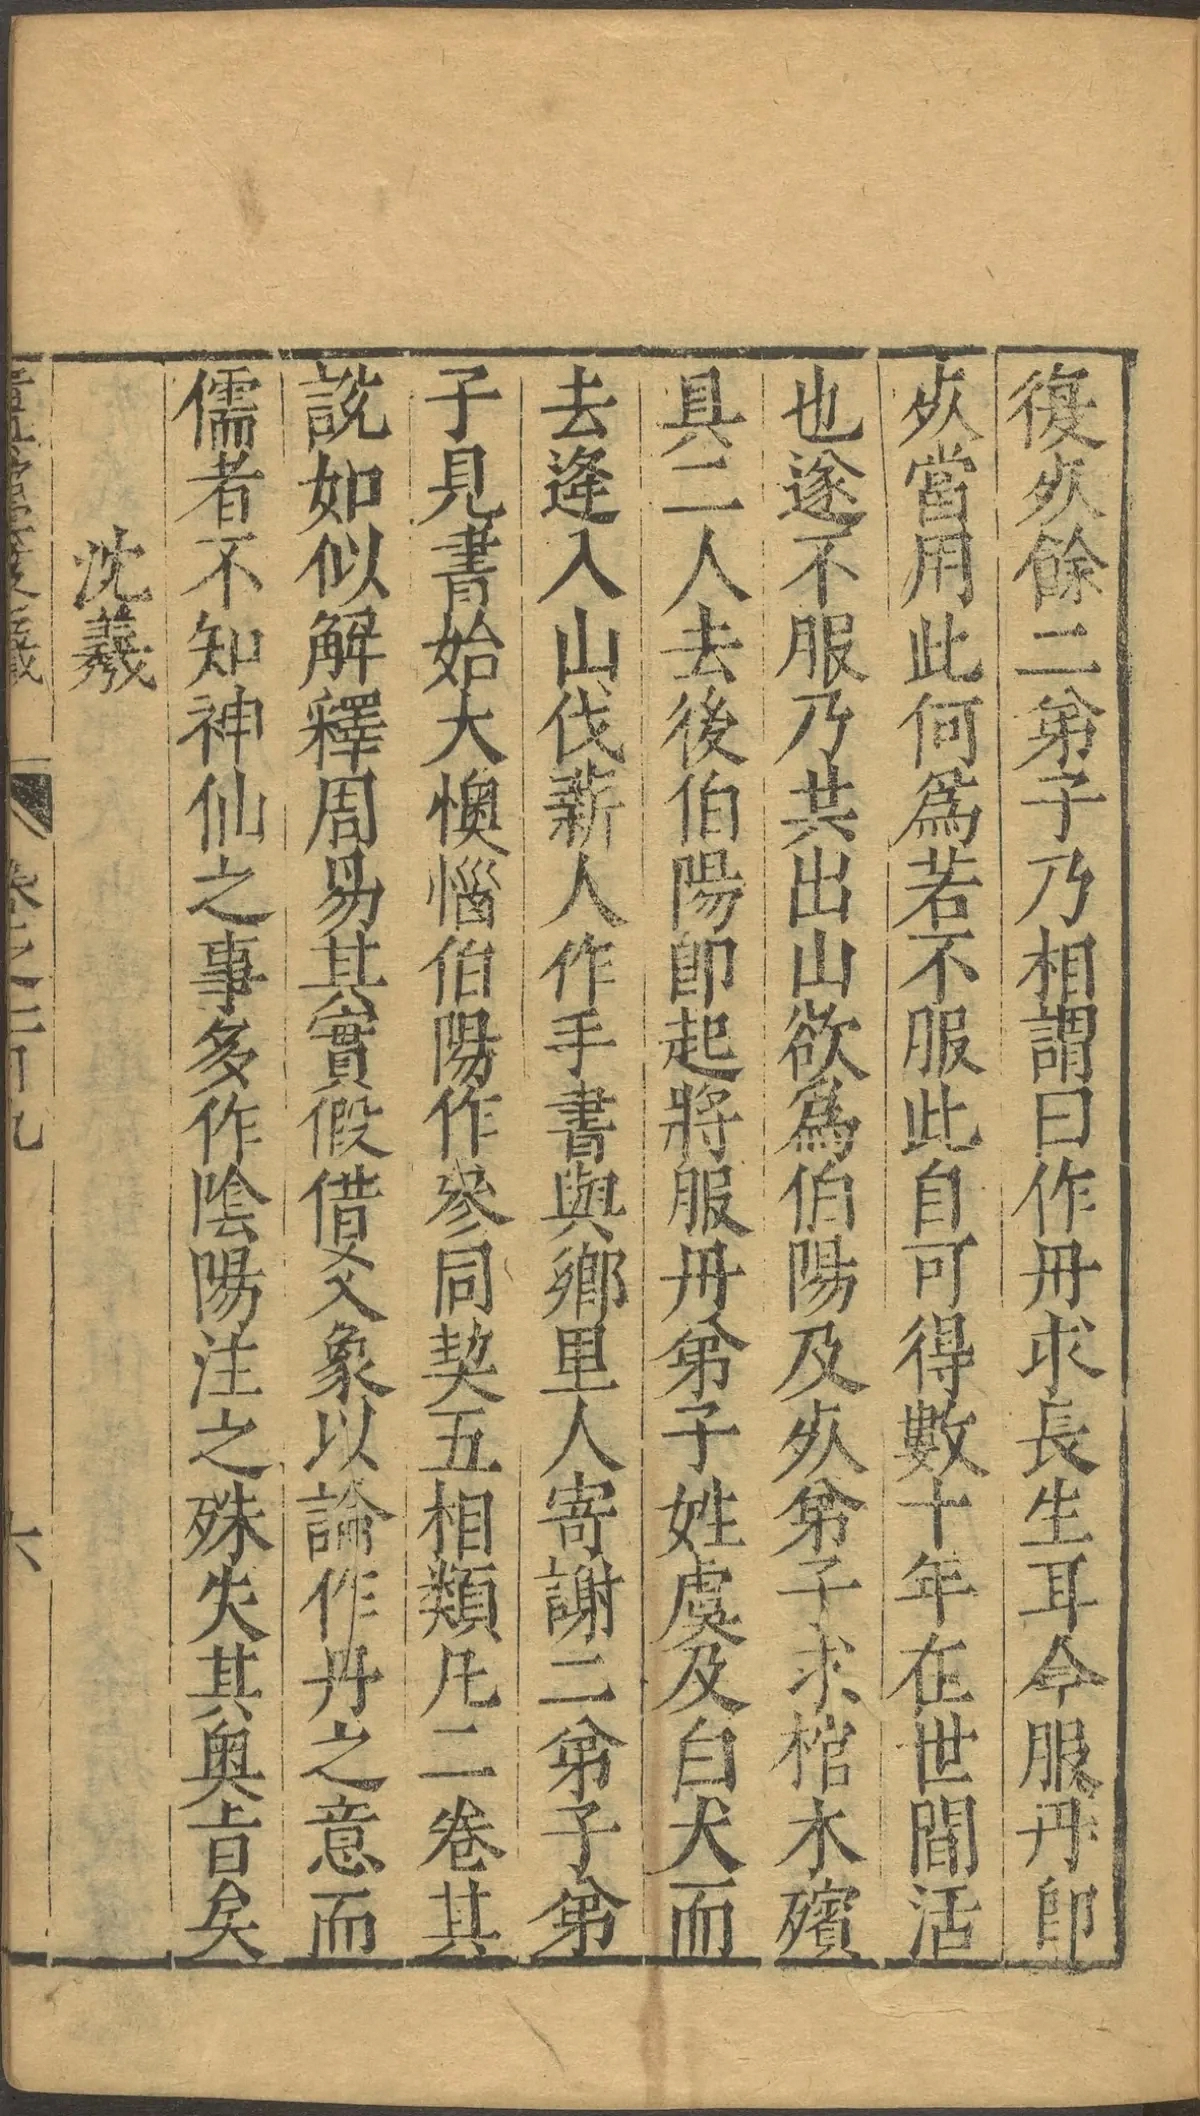 復𣦸餘二弟子乃相謂曰作丹求長生耳今服丹卽
𣦸當用此何爲若不服此自可得數十年在世間活
也遂不服乃共出山欲爲伯陽及𣦸弟子求棺木殯
具二人去後伯陽卽起將服丹弟子姓虞及白犬而
去逄入山伐薪人作手書與鄉里人寄謝二弟子弟
子見書始大懊惱伯陽作參同契五相類凡二卷其
說如似解釋周易其實假借爻象以論作丹之意而
儒者不知神仙之事多作陰陽注之殊失其奥旨矣
沈羲
卷之二百九
六